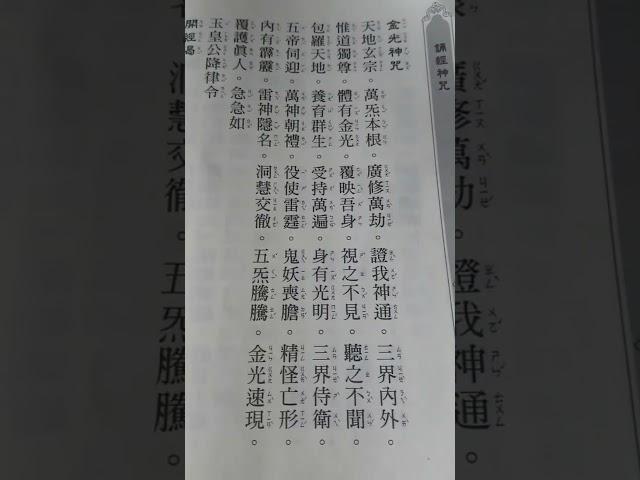 誦經神咒
金光神咒
天地玄宗。萬炁本根。廣修萬劫。證我神通。三界內外。
惟道獨尊。體有金光。覆映吾身。視之不見。聽之不聞。
包羅天地。養育群生。受持萬遍。身有光明。三界侍衛。
五帝伺迎。萬神朝禮。役使雷霆。鬼妖喪膽。精怪亡形。
內有霹靂。雷神隱名。洞慧交徹。五炁騰騰。金光速現。
覆護眞人。急急如
玉皇公降律令
開經偈